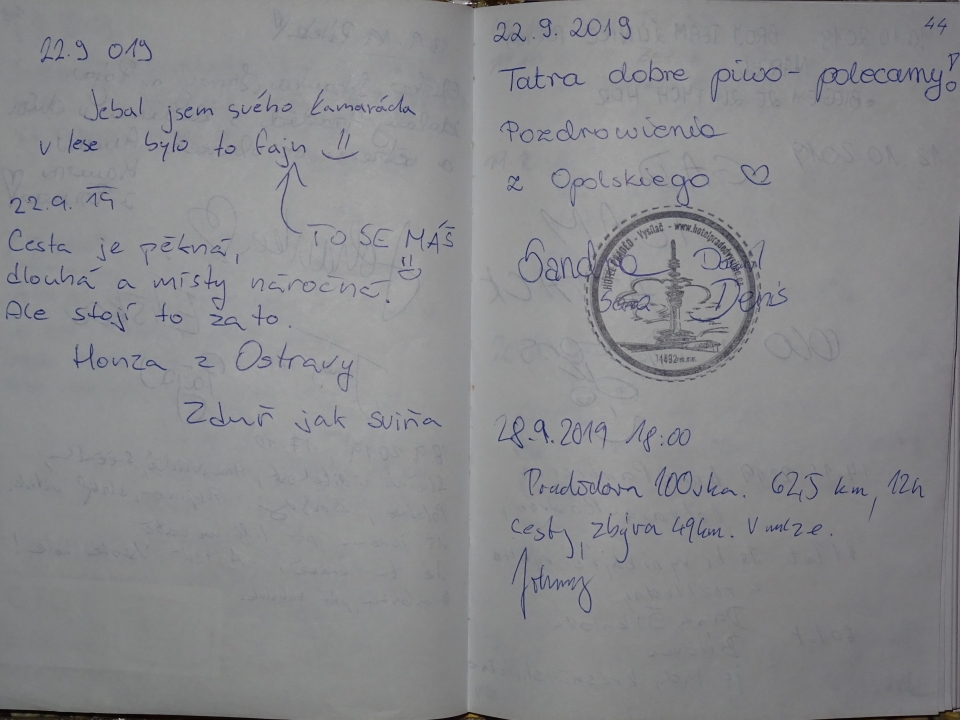 22.9 019
Jebal jsem svého kamaráda
v lese bylo to fajn
22.9. 19
TO SE MÁŠ
Cesta je pěkná,
dlouhá a místy náročná.
Ale stojí to za to.
Honza z Ostravy
Zduř jak sviňa
44
22.9.2019
Tatra dobre piwo - polecamy!
Pozdrowienia
z Opolskiego ♡
Sandra Dawid
Sara Denis
HOTEL PRADĚD - Vysílač - www.hotelpradedvysilac
1492 m.n.m.
28.9.2019 18:00
Pradědova 100vka. 62,5 km, 12h
cesty, zbývá 49km. V mlze.
Johnny